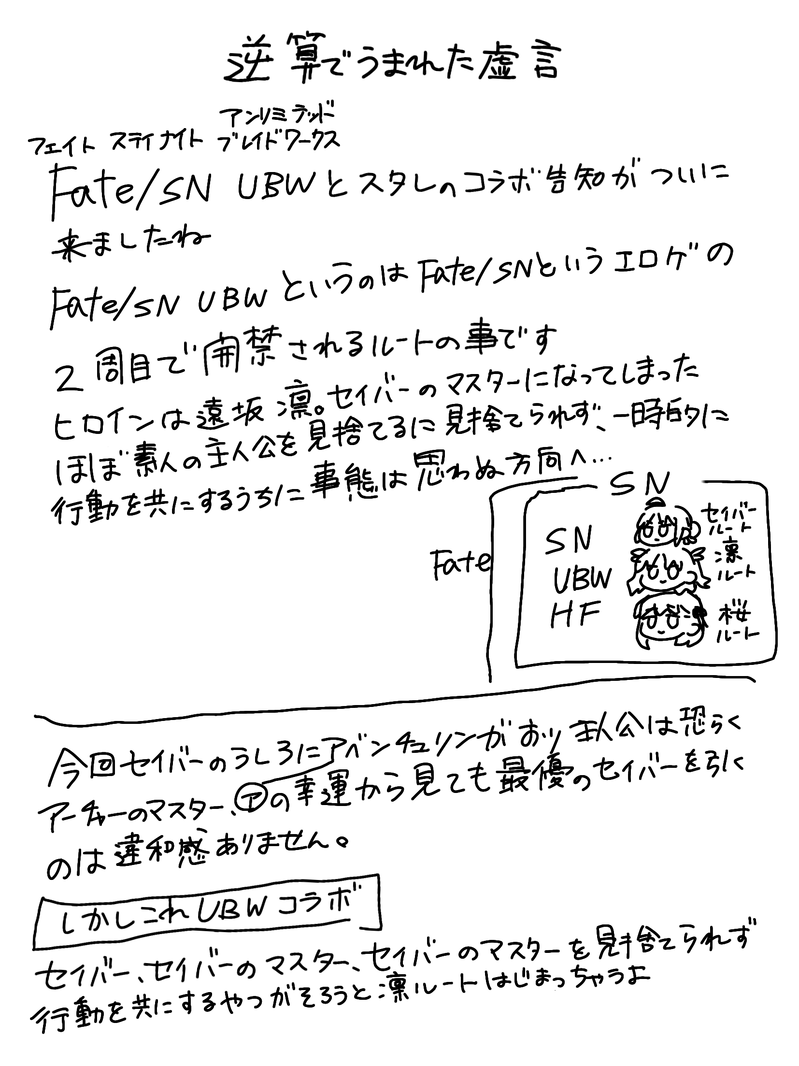 逆算でうまれた虚言
フェイト ステイナイト アンリミテッド
ブレイドワークス
Fate/SN UBWとスタレのコラボ告知がついに
来ましたね
Fate/SN UBWというのはFate/SNというエロゲの
2周目で開禁されるルートの事です
ヒロインは遠坂凛。セイバーのマスターになってしまった
ほぼ素人の主人公を見捨てるに見捨てられず、一時的に
行動を共にするうちに事態は思わぬ方向へ…
SN
Fate
SN セイバールート
UBW 凛ルート
HF 桜ルート
今回セイバーのうしろにアベンチュリンがおり主人公は恐らく
アーチャーのマスター、アの幸運から見ても最優のセイバーを引く
のは違和感ありません。
しかしこれUBWコラボ
セイバー、セイバーのマスター、セイバーのマスターを見捨てられず
行動を共にするやつがそろうと凛ルートはじまっちゃうよ